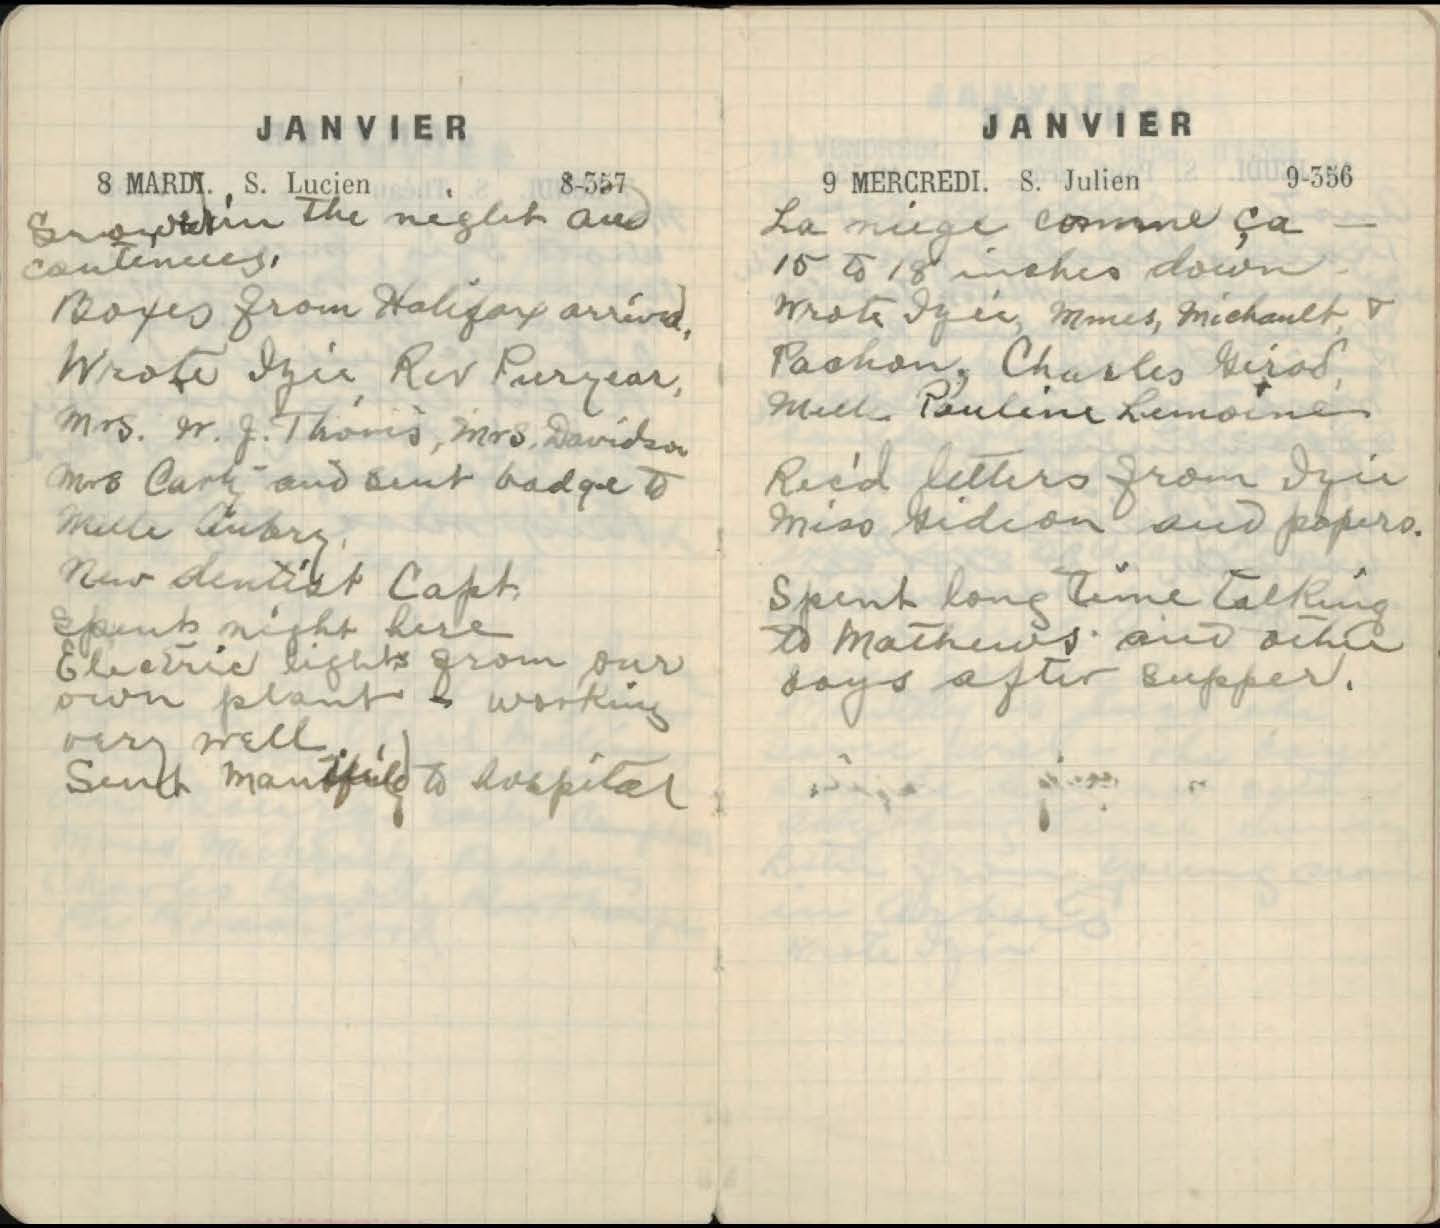 JANVIER
8 MARDI. S. Lucien 8-357
in the night and
continues.
Boxes from Halifax arrived,
Wrote Izie, Rev Puryear,
Mrs. W. J. , Mrs. Davidson
Mrs and sent badge to
Melle Aubry.
New dentist Capt.
Spent night here
Electric lights from our
own plant - working
very well.
Sent to hospital
JANVIER
9 MERCREDI. S. Julien 9-356
La niege comme ça —
15 to 18 inches down.
Wrote Izie, Mmes, Michault, &
Pachon, Charles Girod,
Melle Pauline Lemoine
Rec'd letters from Izie
Miss Gideon and papers.
Spent long time talking
to Mathews and other
boys after supper.